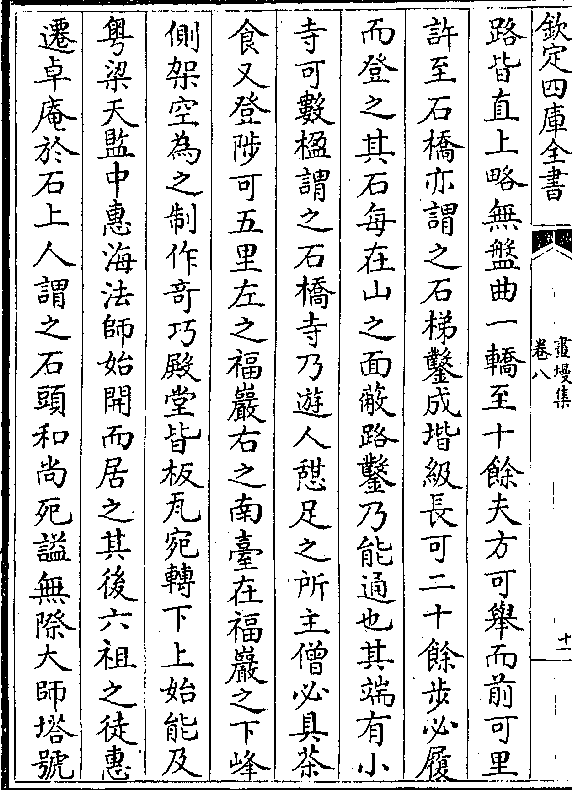 欽定四庫全書
畫墁集
卷八
十一
路皆直上略無盤曲一轎至十餘夫方可舉而前可里
許至石橋亦謂之石梯鑿成堦級長可二十餘步必履
而登之其石每在山之面蔽路鑿乃能通也其端有小
寺可數楹謂之石橋寺乃遊人憇足之所主僧必具茶
食又登陟可五里左之福巖右之南臺在福巖之下峰
側架空為之制作竒巧殿堂皆板瓦宛轉下上始能及
粤梁天監中惠海法師始開而居之其後六祖之徒惠
遷卓庵於石上人謂之石頭和尚死諡無際大師塔號